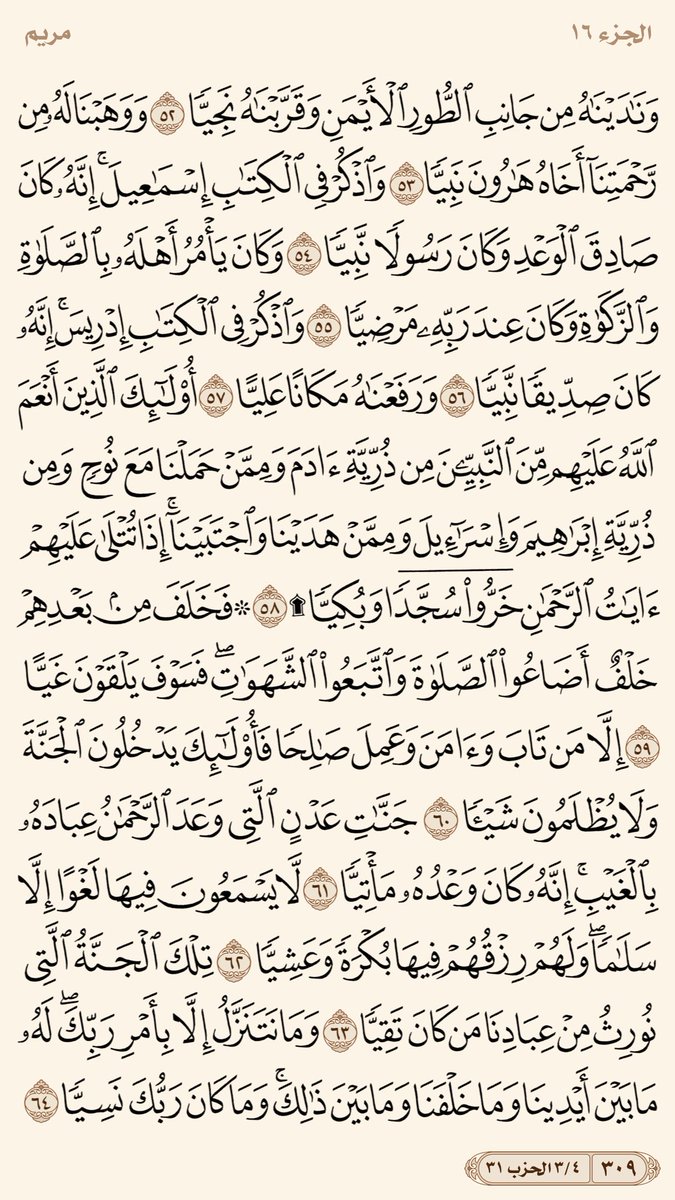 الجزء ١٦ مريم
وَنَٰدَيْنَٰهُ مِن جَانِبِ ٱلطُّورِ ٱلْأَيْمَنِ وَقَرَّبْنَٰهُ نَجِيًّا ٥٢ وَوَهَبْنَا لَهُۥ مِن
رَّحْمَتِنَآ أَخَاهُ هَٰرُونَ نَبِيًّا ٥٣ وَٱذْكُرْ فِى ٱلْكِتَٰبِ إِسْمَٰعِيلَ ۚ إِنَّهُۥ كَانَ
صَادِقَ ٱلْوَعْدِ وَكَانَ رَسُولًا نَّبِيًّا ٥٤ وَكَانَ يَأْمُرُ أَهْلَهُۥ بِٱلصَّلَوٰةِ
وَٱلزَّكَوٰةِ وَكَانَ عِندَ رَبِّهِۦ مَرْضِيًّا ٥٥ وَٱذْكُرْ فِى ٱلْكِتَٰبِ إِدْرِيسَ ۚ إِنَّهُۥ
كَانَ صِدِّيقًا نَّبِيًّا ٥٦ وَرَفَعْنَٰهُ مَكَانًا عَلِيًّا ٥٧ أُو۟لَٰٓئِكَ ٱلَّذِينَ أَنْعَمَ
ٱللَّهُ عَلَيْهِم مِّنَ ٱلنَّبِيِّـۧنَ مِن ذُرِّيَّةِ ءَادَمَ وَمِمَّنْ حَمَلْنَا مَعَ نُوحٍ وَمِن
ذُرِّيَّةِ إِبْرَٰهِيمَ وَإِسْرَٰٓءِيلَ وَمِمَّنْ هَدَيْنَا وَٱجْتَبَيْنَآ ۚ إِذَا تُتْلَىٰ عَلَيْهِمْ
ءَايَٰتُ ٱلرَّحْمَٰنِ خَرُّوا۟ سُجَّدًا وَبُكِيًّا ۩ ٥٨ ۞ فَخَلَفَ مِنۢ بَعْدِهِمْ
خَلْفٌ أَضَاعُوا۟ ٱلصَّلَوٰةَ وَٱتَّبَعُوا۟ ٱلشَّهَوَٰتِ ۖ فَسَوْفَ يَلْقَوْنَ غَيًّا
٥٩ إِلَّا مَن تَابَ وَءَامَنَ وَعَمِلَ صَٰلِحًا فَأُو۟لَٰٓئِكَ يَدْخُلُونَ ٱلْجَنَّةَ
وَلَا يُظْلَمُونَ شَيْـًٔا ٦٠ جَنَّٰتِ عَدْنٍ ٱلَّتِى وَعَدَ ٱلرَّحْمَٰنُ عِبَادَهُۥ
بِٱلْغَيْبِ ۚ إِنَّهُۥ كَانَ وَعْدُهُۥ مَأْتِيًّا ٦١ لَّا يَسْمَعُونَ فِيهَا لَغْوًا إِلَّا
سَلَٰمًا ۖ وَلَهُمْ رِزْقُهُمْ فِيهَا بُكْرَةً وَعَشِيًّا ٦٢ تِلْكَ ٱلْجَنَّةُ ٱلَّتِى
نُورِثُ مِنْ عِبَادِنَا مَن كَانَ تَقِيًّا ٦٣ وَمَا نَتَنَزَّلُ إِلَّا بِأَمْرِ رَبِّكَ ۖ لَهُۥ
مَا بَيْنَ أَيْدِينَا وَمَا خَلْفَنَا وَمَا بَيْنَ ذَٰلِكَ ۚ وَمَا كَانَ رَبُّكَ نَسِيًّا ٦٤
٣٠٩ ٣/٤ الحزب ٣١